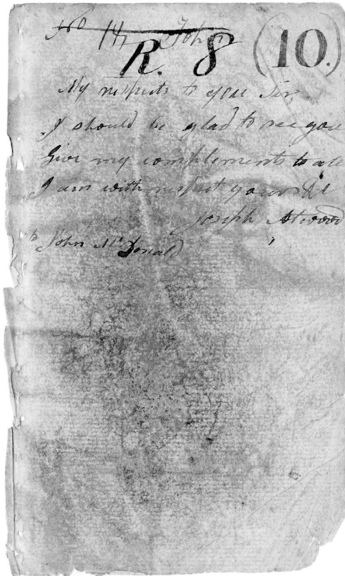 No 14, John
R. 8 (10.)
My respects to you Sir
I should be glad to see you
Give my complements to all
I am with respect yours &c
Joseph Atwood
to John McDonald